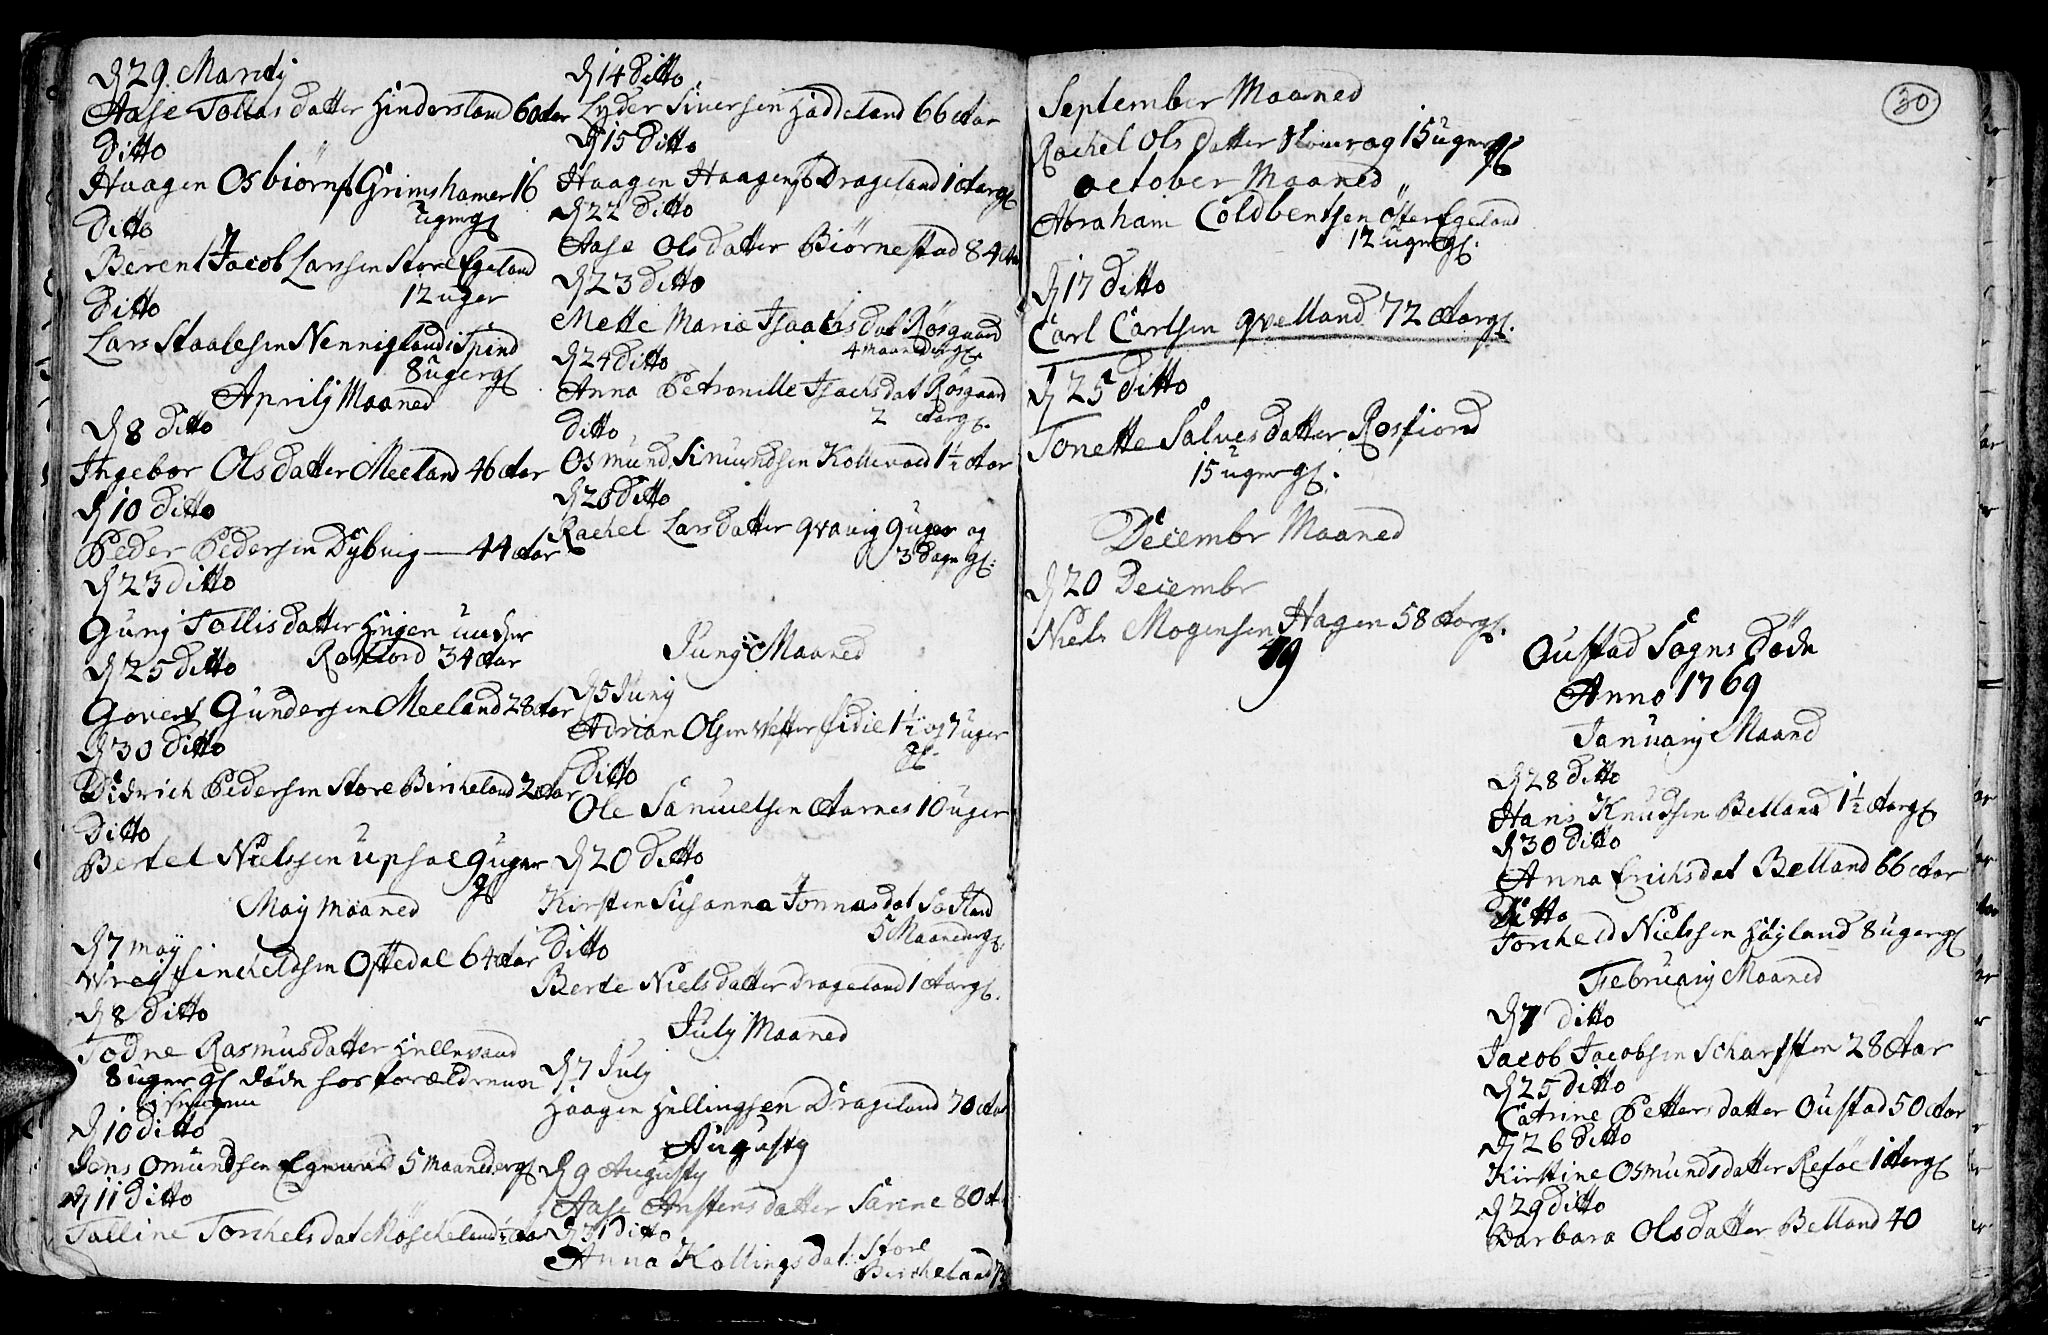 D 29 Martij
Aase Tollas datter Hindersland 60 Aar
Ditto
Haagen Osbiörns Grimshamer 16
uger gl
Ditto
Berent Jacob Larsen Store Egeland
12 uger
Ditto
Lars Staalesen Nennigland i Spind
8 uger gl
Aprilij Maaned
D 8 ditto
Ingebor Olsdatter Meeland 46 Aar
D 10 ditto
Peder Pedersen Dybvig — 44 Aar
D 23 ditto
Gunj Tollisdatter Heien under
Rosfiord 34 Aar
D 25 ditto
Govert Gundersen Meeland 28 Aar
D 30 ditto
Didrich Pedersen Store Bircheland 2 Aar
Ditto
Bertel Nielssen Upsal 9 uger
gl
May Maaned
D 7 may
Wrej fincheldsen Oftedal 64 Aar
D 8 Ditto
Todne Rasmusdatter Hellevand
8 uger gl döde hos forældrenne
D 10 ditto
Jens Omundsen Egmund 5 Maaneder gl
D 11 Ditto
Talline Torchelsdat Möscheland ½ Aar
D 14 Ditto
Lyder Siversen Haddeland 66 Aar
D 15 Ditto
Haagen Haagens Drageland 1 Aar gl
D 22 Ditto
Aase Olsdatter Biörnestad 84 Aar
D 23 Ditto
Mette Maria Isaachsdat Rösgaard
4 maaneder gl.
D 24 ditto
Anna Petronille Isachsdat Rösgaard
2 Aar gl.
Ditto
Osmund Simundsen Kollevold 1½ Aar
D 28 Ditto
Rachel Larsdatter Qvavig 9 uger og
3 Dage gl.
Junij Maaned
D 5 Junij
Adrian Olsen Vester Eidie 1½ og 7 uger
gl.
Ditto
Ole Samuelsen Aarnes 10 uger
D 20 Ditto
Kirsten Susanna Jonnasdat Sæstand
5 Maaneder gl.
Ditto
Berte Nielsdatter Drageland 1 Aar gl.
July Maaned
D 7 July
Haagen Hellingsen Drageland 70 Aar
Augusty
D 9 Augusty
Aase Anstensdatter Sarine 80 A
D 31 Ditto
Anna Kollingsdat: Store
Bircheland
30
September Maaned
Rachel Olsdatter 15 uger gl
October Maaned
Abraham Coldbentsen Öster Egeland
12 uger gl.
D 17 Ditto
Carl Carlsen Qvelland 72 Aar gl.
D 25 Ditto
Tonette Salvesdatter Rosfiord
15 uger gl.
Decembr Maaned
D 20 Decembr
Niels Mogensen Hagen 58 Aar gl.
49
Oustad Sogns Döde
Anno 1769
January Maand
D 28 ditto
Hans Knudsen Belland 1½ Aar gl
D 30 ditto
Anna Erichsdat Belland 66 Aar
Ditto
Torcheld Nielssen Höyland 8 uger gl
February Maaned
D 7 ditto
Jacob Jacobsen Scharsten 28 Aar
D 25 ditto
Catrine Pettersdatter Oustad 50 Aar
D 26 ditto
Kirstine Osmundsdatter Reföe 1 Aar gl
D 29 ditto
Barbara Olsdatter Belland 40